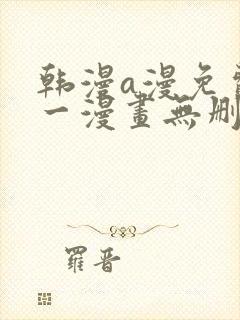 韩漫a漫免
一漫畫無刪
羅晋